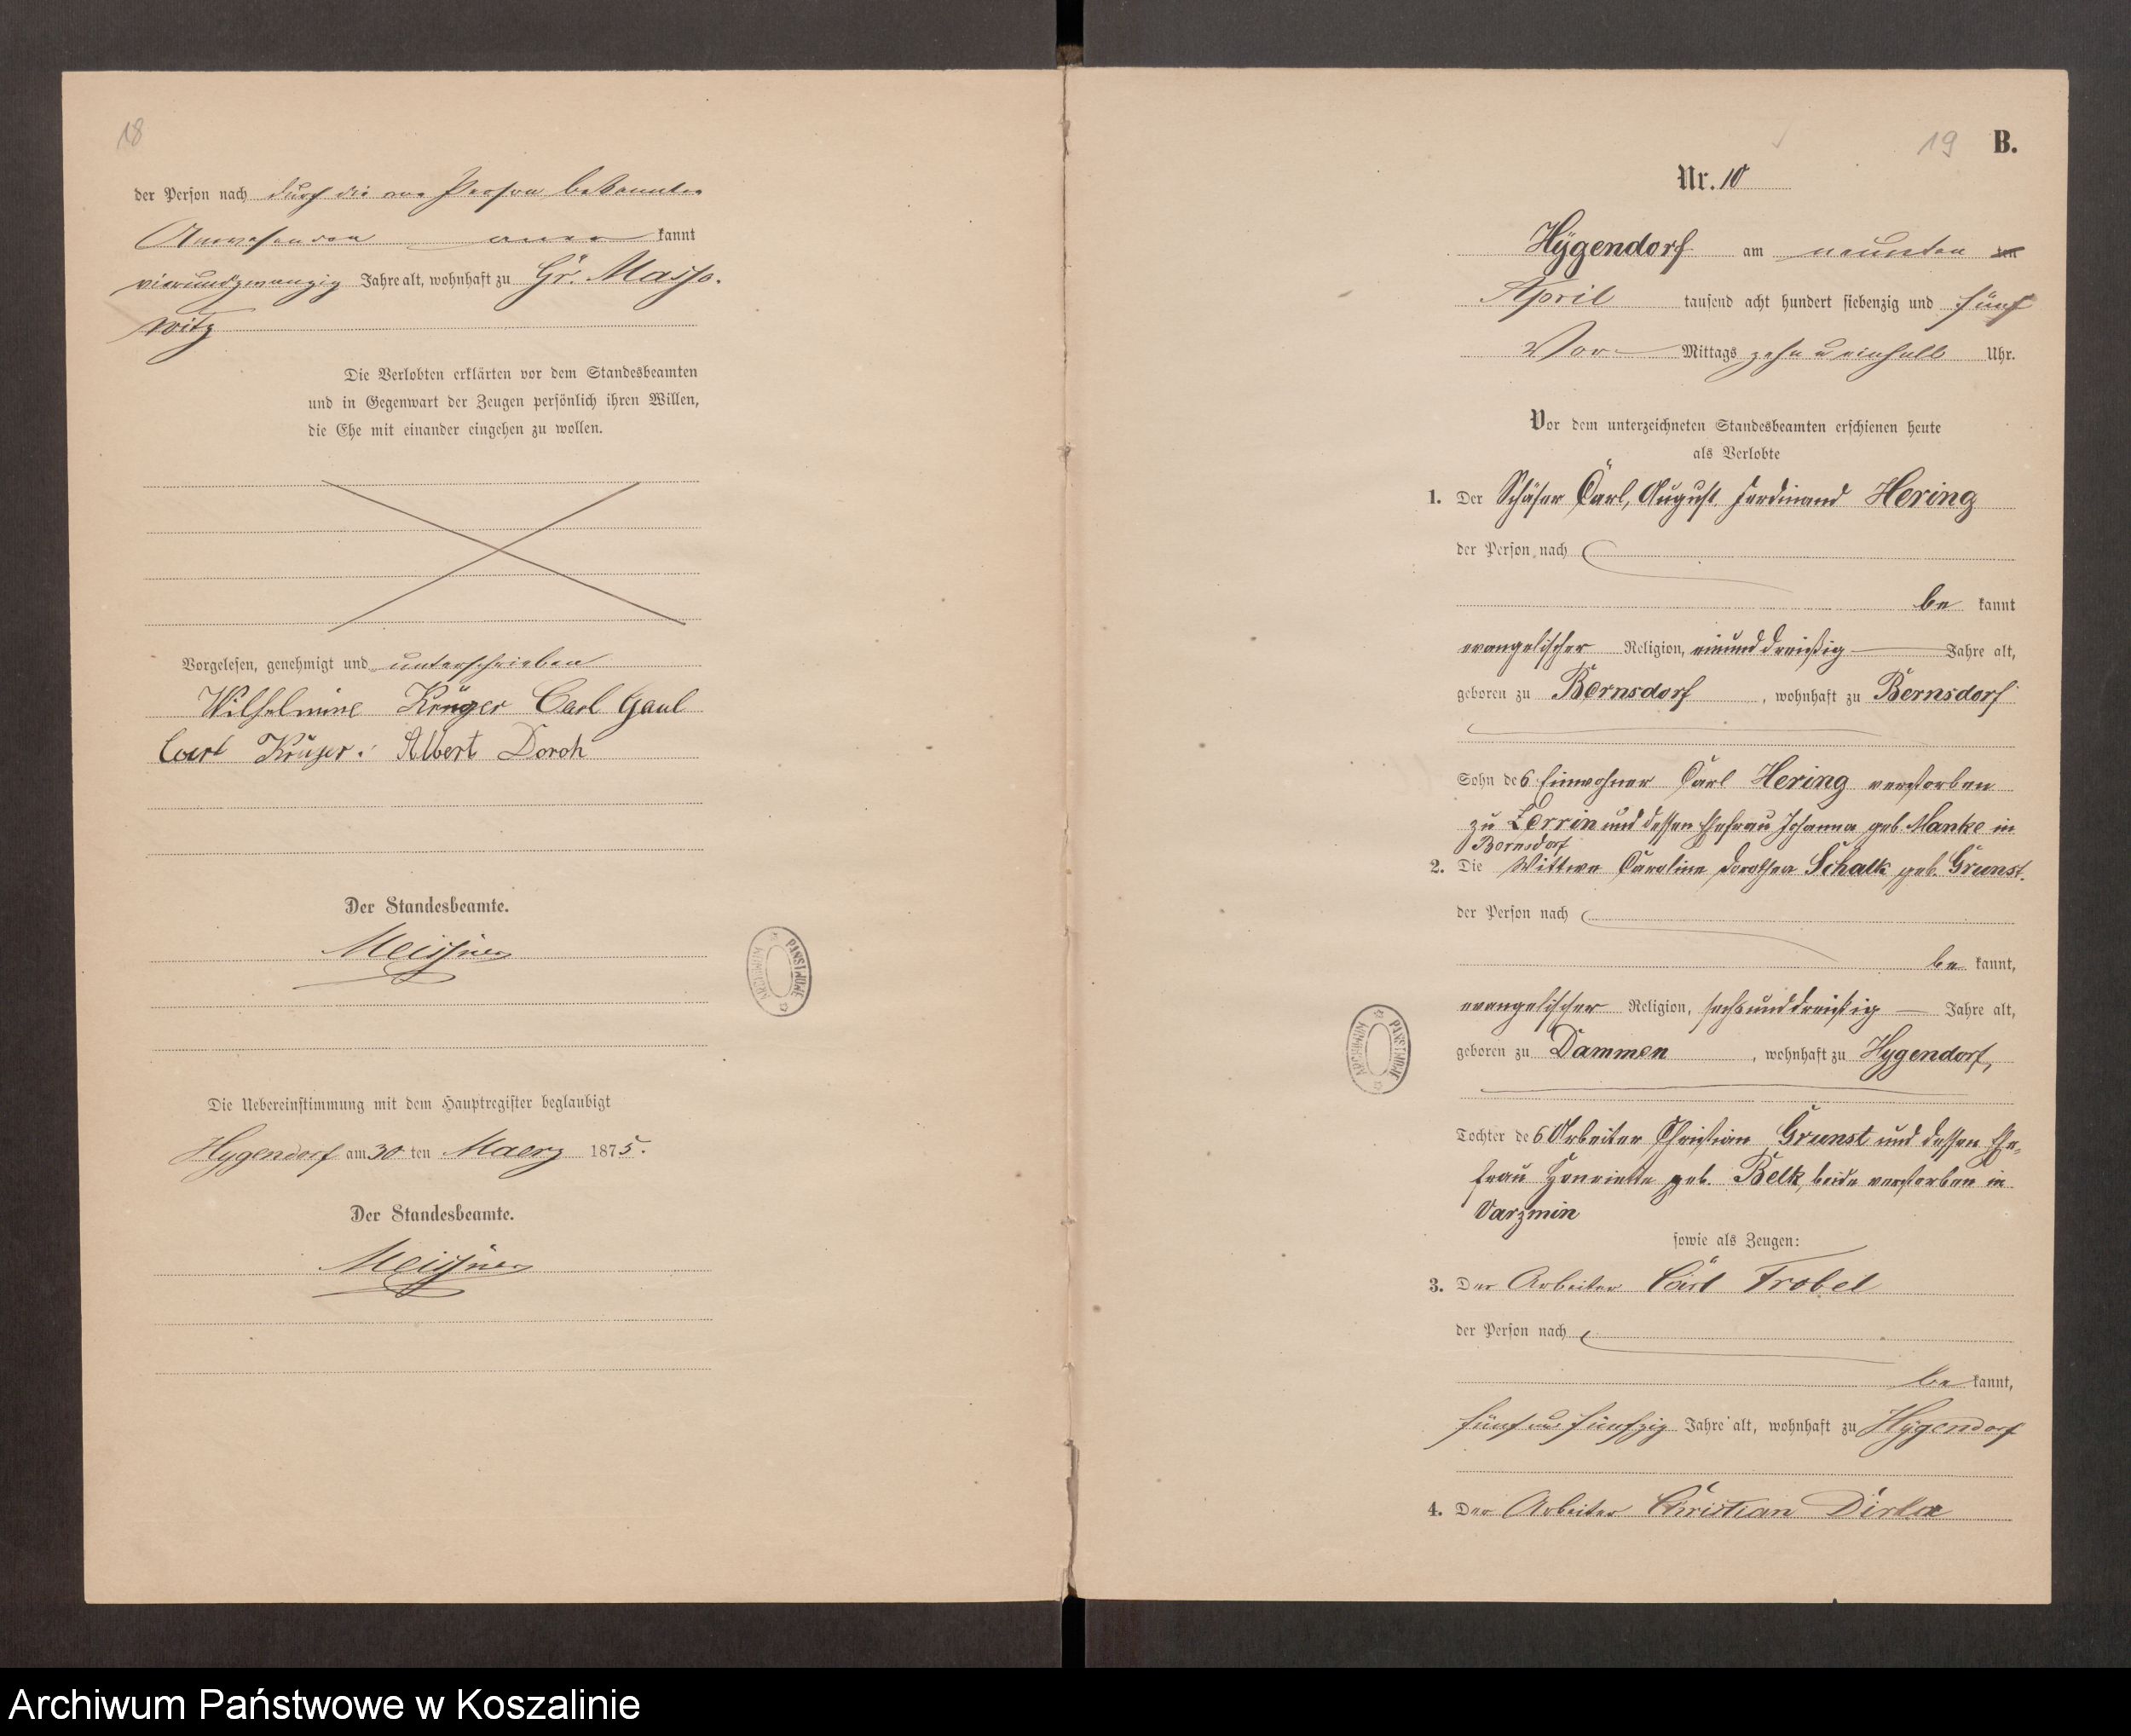 18
der Person nach durch die von Person bekannten
Anwesenden aner kannt
vierundzwanzig Jahre alt, wohnhaft zu Gr. Masso-
witz
Die Verlobten erklärten vor dem Standesbeamten
und in Gegenwart der Zeugen persönlich ihren Willen,
die Ehe mit einander eingehen zu wollen.
Vorgelesen, genehmigt und unterschrieben
Wilhelmine Krüger Carl Gaul
Carl Krüger. Albert Doroh
Der Standesbeamte.
Meissner
ARCHIWUM PAŃSTWOWE
Die Uebereinstimmung mit dem Hauptregister beglaubigt
Hygendorf am 30 ten Maerz 1875.
Der Standesbeamte.
Meissner
19 B.
Nr. 10
Hygendorf am neunten ten
April tausend acht hundert siebenzig und fünf
Vor Mittags zehn u einhalb Uhr.
Vor dem unterzeichneten Standesbeamten erschienen heute
als Verlobte
1. Der Schäfer Carl, August Ferdinand Hering
der Person nach
be kannt
evangelischer Religion, einunddreißig Jahre alt,
geboren zu Bornsdorf, wohnhaft zu Bernsdorf
Sohn des Einwohner Carl Hering verstorben
zu Lerrin und dessen Ehefrau Johanna geb. Manke in
Bornsdorf
2. Die Wittwe Caroline Dorothea Schalk geb. Grunst.
der Person nach
be kannt,
evangelischer Religion, sechsunddreißig Jahre alt,
geboren zu Dammen, wohnhaft zu Hygendorf,
Tochter des Arbeiter Christian Grunst und dessen Ehe-
frau Henriette geb. Belk, beide verstorben in
Varzmin
sowie als Zeugen:
3. Der Arbeiter Carl Trobel
der Person nach
be kannt,
fünf und fünfzig Jahre alt, wohnhaft zu Hygendorf
ARCHIWUM PAŃSTWOWE
4. Der Arbeiter Christian
Archiwum Państwowe w Koszalinie